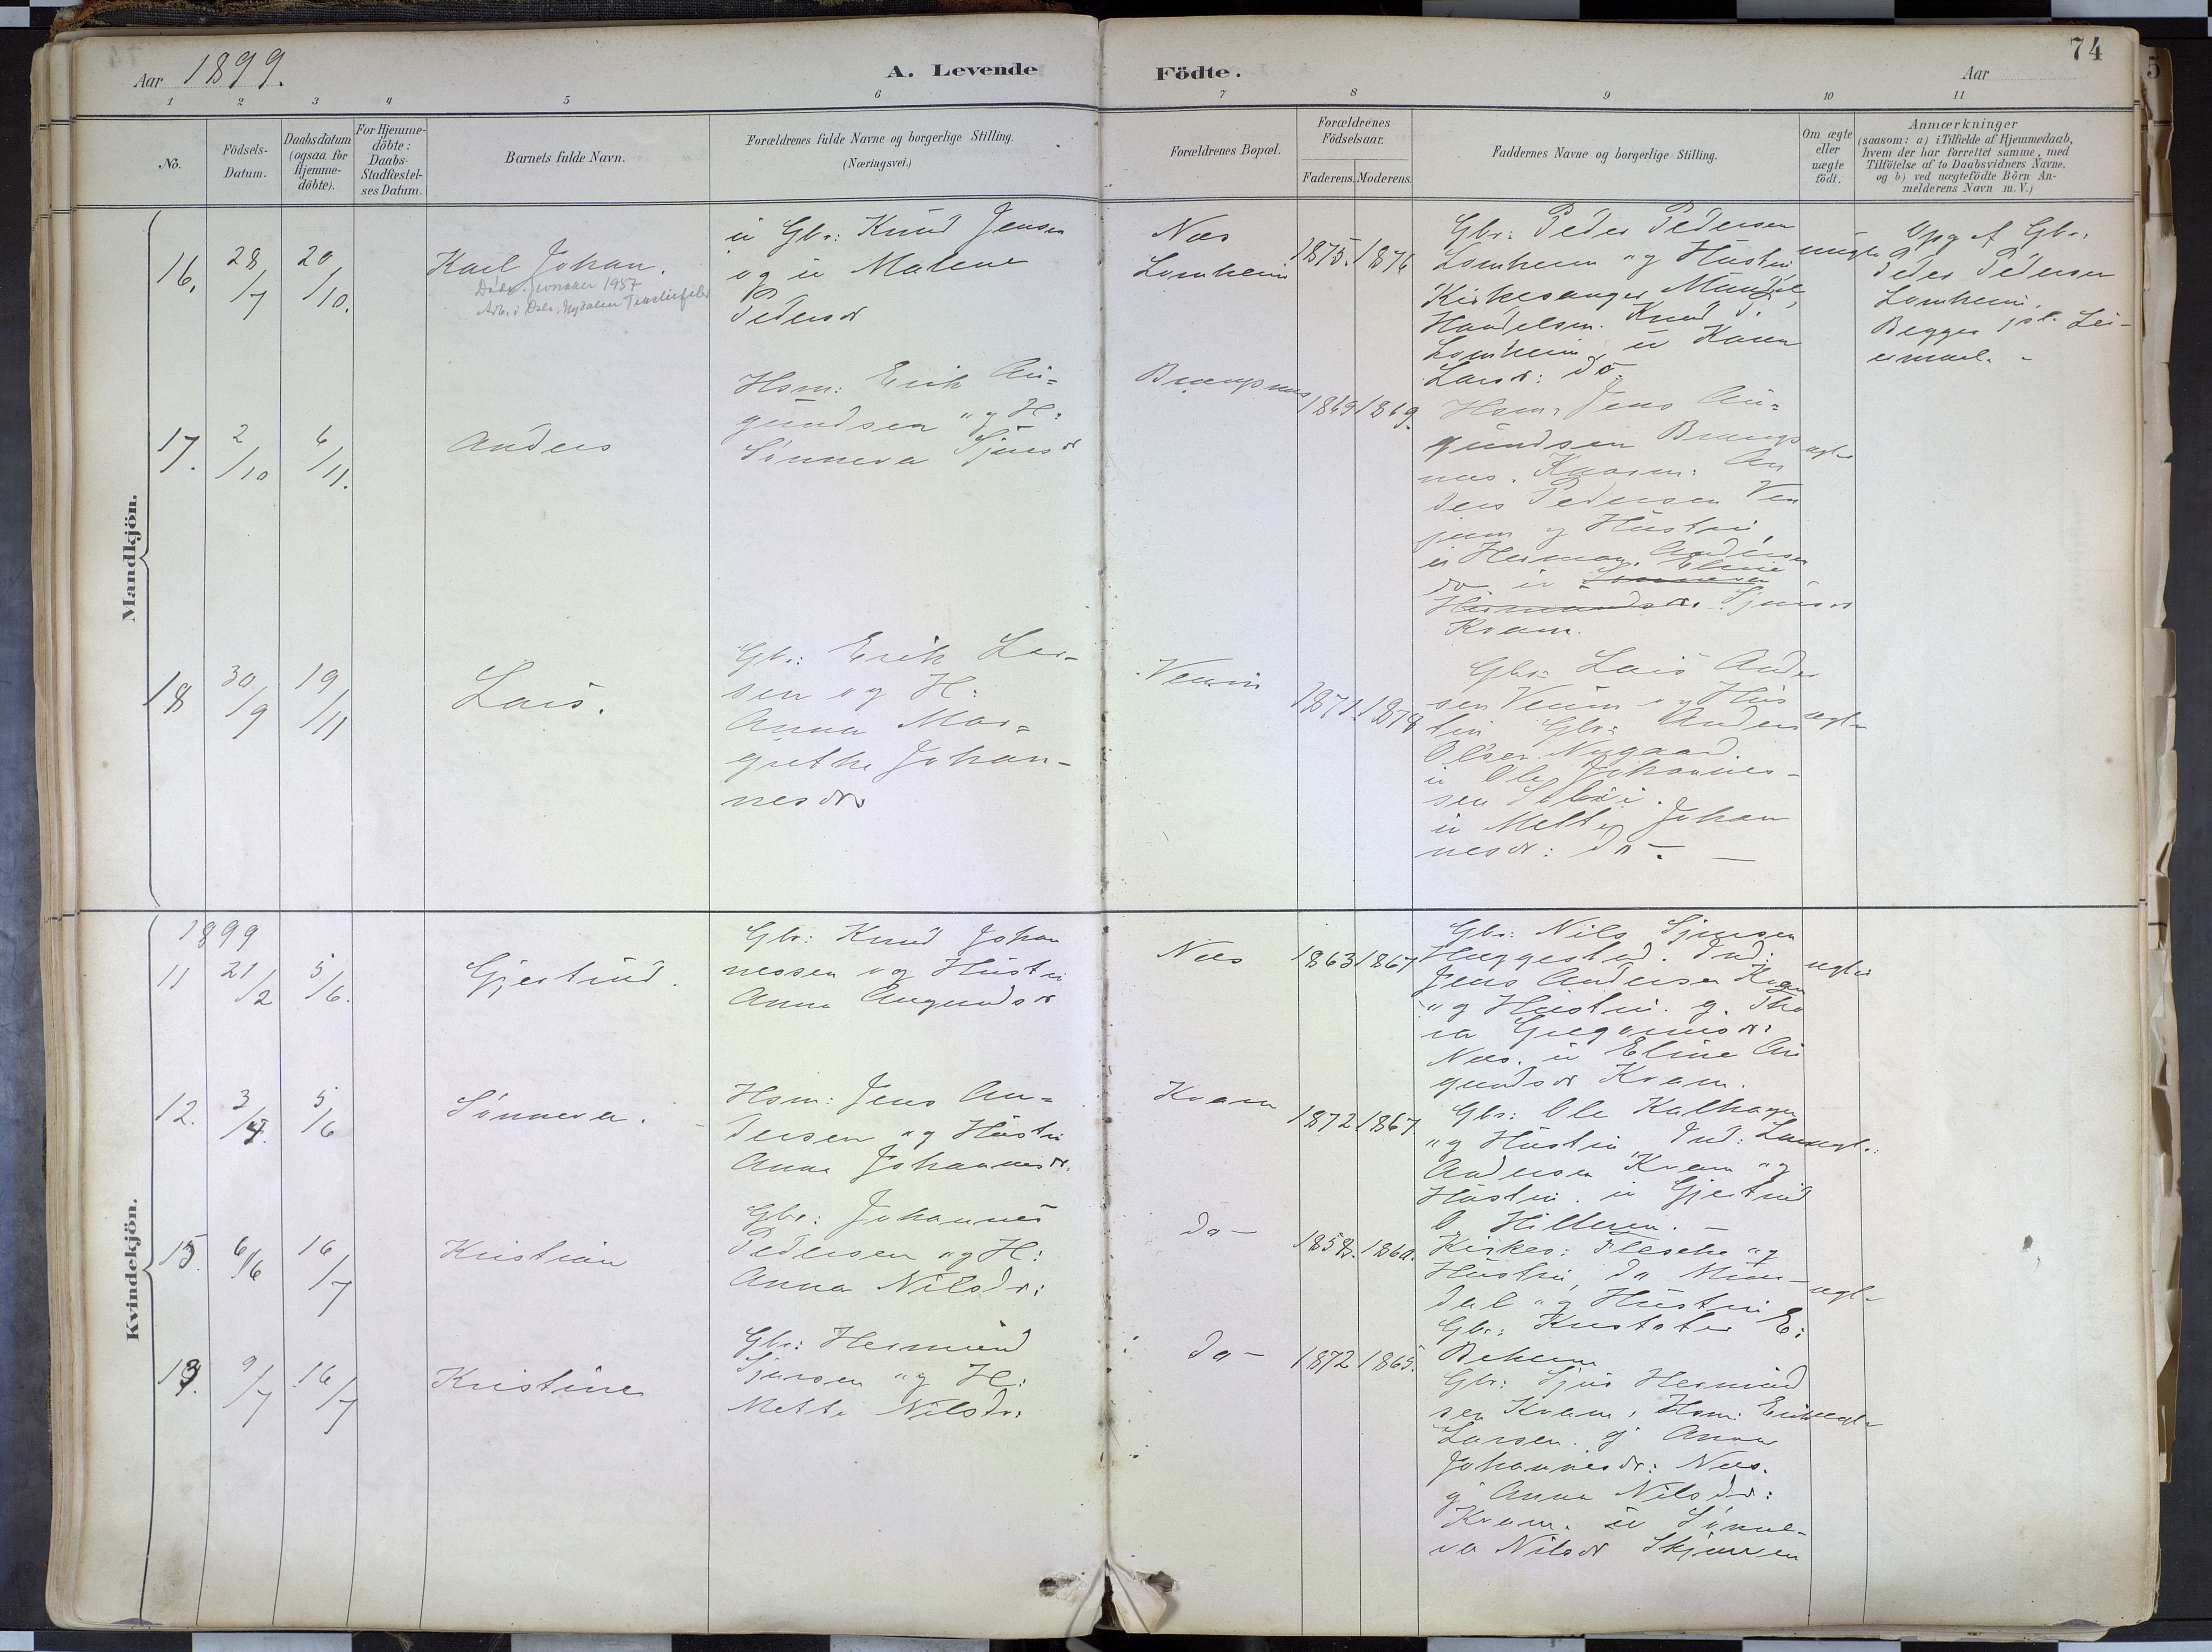 74
Aar 1899.
A. Levende
Födte.
Aar
1 2 3 4 5 6 7 8 9 10 11
No.
Födsels-
Datum.
Daabsdatum
(ogsaa for
Hjemme-
döbte).
For Hjemme-
döbte:
Daabs-
Stadfæstel-
ses Datum.
Barnets fulde Navn.
Forældrenes fulde Navne og borgerlige Stilling.
(Næringsvei.)
Forældrenes Bopæl.
Forældrenes
Födselsaar.
Faderens. Moderens.
Faddernes Navne og borgerlige Stilling.
Om ægte
eller
uægte
födt.
Anmærkninger
(saasom: a) i Tilfælde af Hjemmedaab,
hvem der har forrettet samme, med
Tilföielse af to Daabsvidners Navne.
og b) ved uægtefödte Börn An-
melderens Navn m. V.)
Mandkjön.
16.
28/7
20/10.
Karl Johan.
Jevnaker 1957
u Gbr: Knud Jensen
og u Malene
Pedersdr
Næs
Lomheim
1875. 1876
Gbr: Peder Pedersen
Lomheim og Hustru,
Kirkesanger Mundal,
Handelsm. Knud J.
Lomheim, u Karen
Larsdr: do.
uægte
Opg af Gbr.
Peder Pedersen
Lomheim.
Begges 1ste Lei-
ermaal.
17.
2/10
6/11.
Anders
Hsm: Erik An=
gundsen og H:
Sønneva Sjursdr
1869 1869.
Hsm: Jens An=
gundsen
nes. Kaarm: An
ders Pedersen Ven
jum og Hustru,
u Hermann Andersen
do u Sønneva Eline
Hermundsdr. Sjursdr
Kvam.
ægte
18
30/9
19/11
Lars.
Gbr: Erik Lar-
sen og H:
Anna Mar=
grethe Johan-
nesdr:
Venum
1871. 1878
Gbr: Lars Ander
sen Venum og Hus
tru Gbr: Anders
Olsen Nygaard.
u Ole Johannes-
sen
u Mette Johan
nesdr: do.
ægte
Kvindekjön.
1899
11
21/2
5/6.
Gjertrud.
Gbr: Knud Johan
nessen og Hustru
Anna Augundsdr
Næs
1863 1867
Gbr: Nils Sjursen
Hæggestad. Ind:
Jens Andersen
og Hustru. g. Tho
ra Gregoriusdr:
Næs. u Eline An
gundsdr Kvam.
ægte
12.
3/4.
5/6
Sønneva.
Hsm: Jens An=
dersen og Hustru
Anna Johannesdr.
Kvam
1872 1867
Gbr: Ole Kalhagen
og Hustru, Ind: Lars
Andersen Kvam og
Hustru. u Gjertrud
O. Hilleren.
ægte
15.
6/6
16/7
Kristian
Gbr: Johannes
Pedersen og H:
Anna Nilsdr:
do
1858. 1860.
Kirkes: Flesche og
Hustru, do Mun-
dal og Hustru
Gbr: Kristofer E:
Beheim
ægte
13.
9/7
16/7
Kristine
Gbr: Hermund
Sjursen og H:
Mette Nilsdr:
do
1872 1865.
Gbr: Sjur Hermund
sen Kvam, Hsm: Erik
Larsen. g Anna
Johannesdr: Næs.
g Anna Nilsdr:
Kvam. u Sønne-
va Nilsdr Skjerven
ægte